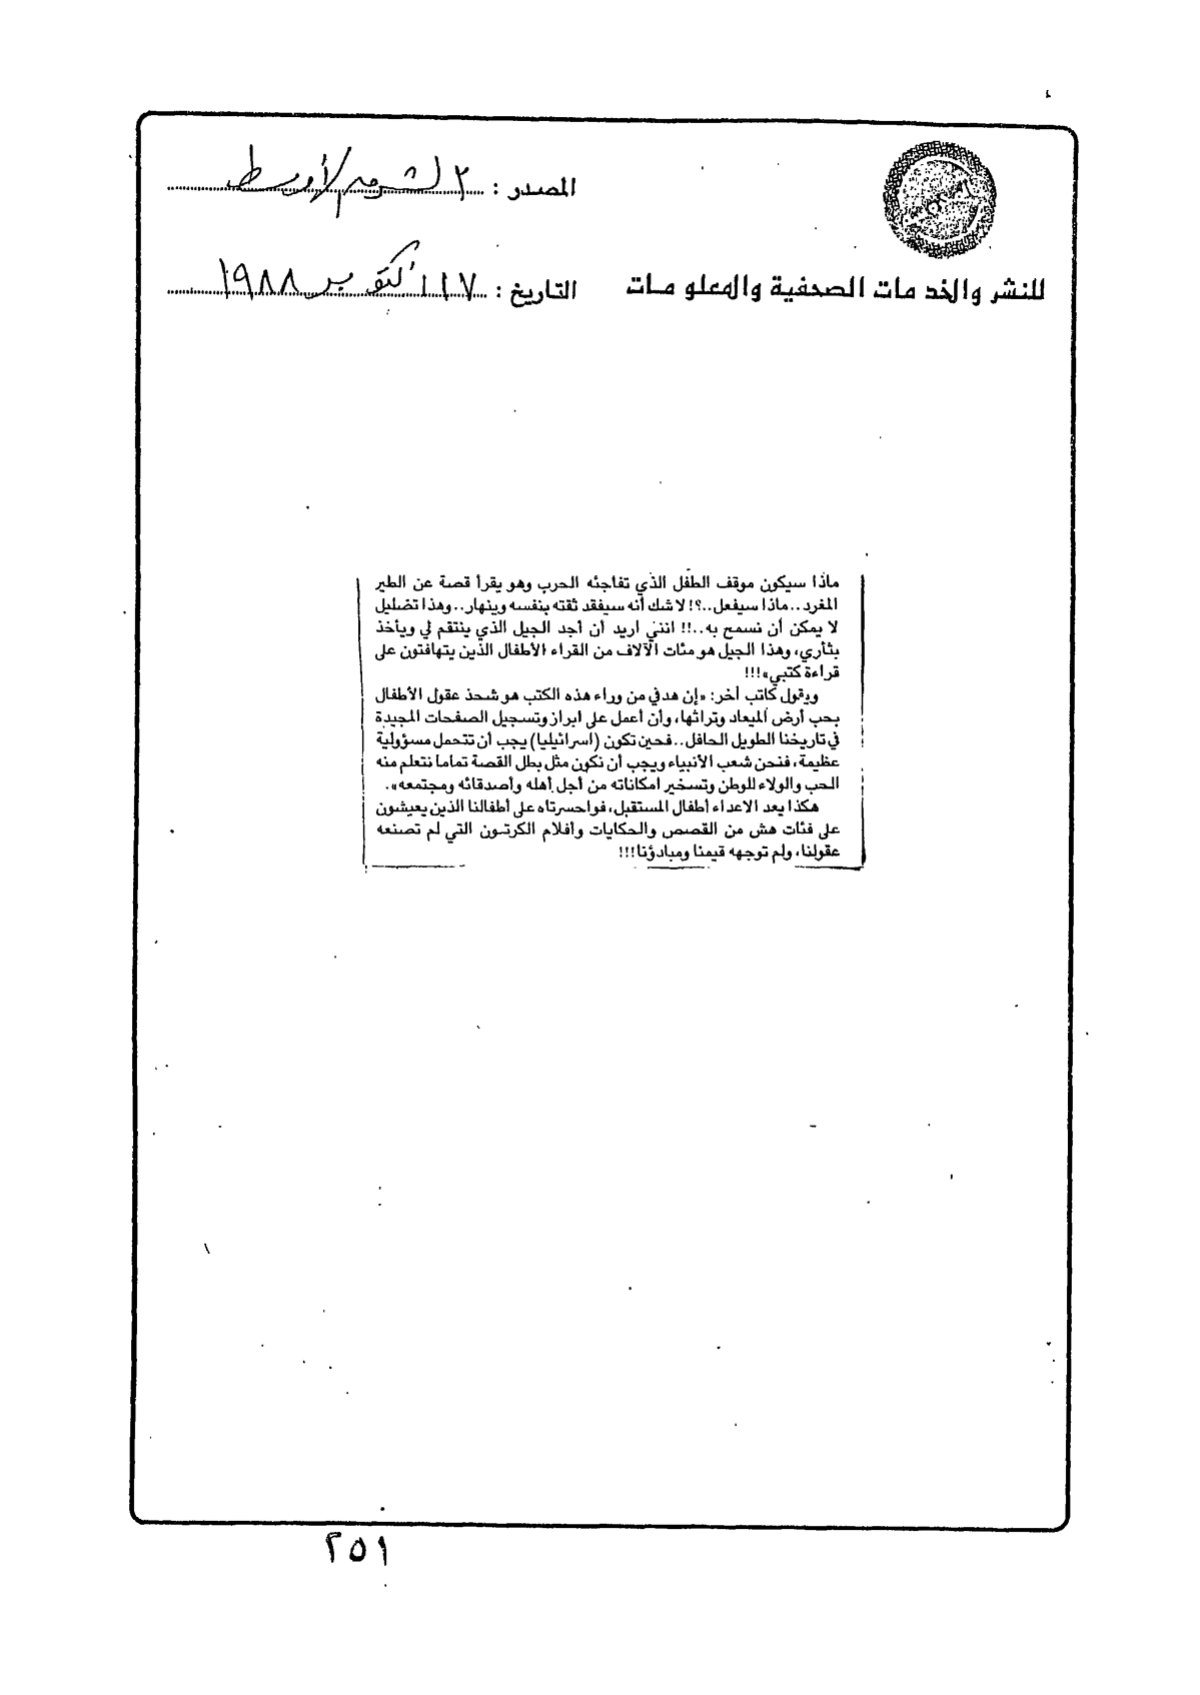 المصدر : الشرق الأوسط
للنشر والخدمات الصحفية والمعلومات
التاريخ : ١٧ أكتوبر ١٩٨٨
ماذا سيكون موقف الطفل الذي تفاجئه الحرب وهو يقرأ قصة عن الطير
المغرد.. ماذا سيفعل..؟! لا شك أنه سيفقد ثقته بنفسه وينهار.. وهذا تضليل
لا يمكن أن نسمح به..!! انني اريد أن أجد الجيل الذي ينتقم لي ويأخذ
بثأري، وهذا الجيل هو مئات الآلاف من القراء الأطفال الذين يتهافتون على
قراءة كتبي»!!!
ويقول كاتب آخر: «إن هدفي من وراء هذه الكتب هو شحذ عقول الأطفال
بحب أرض الميعاد وتراثها، وأن أعمل على ابراز وتسجيل الصفحات المجيدة
في تاريخنا الطويل الحافل.. فحين تكون (اسرائيليا) يجب أن تتحمل مسؤولية
عظيمة، فنحن شعب الأنبياء ويجب أن نكون مثل بطل القصة تماما نتعلم منه
الحب والولاء للوطن وتسخير امكاناته من أجل أهله وأصدقائه ومجتمعه».
هكذا يعد الاعداء أطفال المستقبل، فواحسرتاه على أطفالنا الذين يعيشون
على فئات هش من القصص والحكايات وأفلام الكرتون التي لم تصنعه
عقولنا، ولم توجهه قيمنا ومبادؤنا!!!
٢٥١